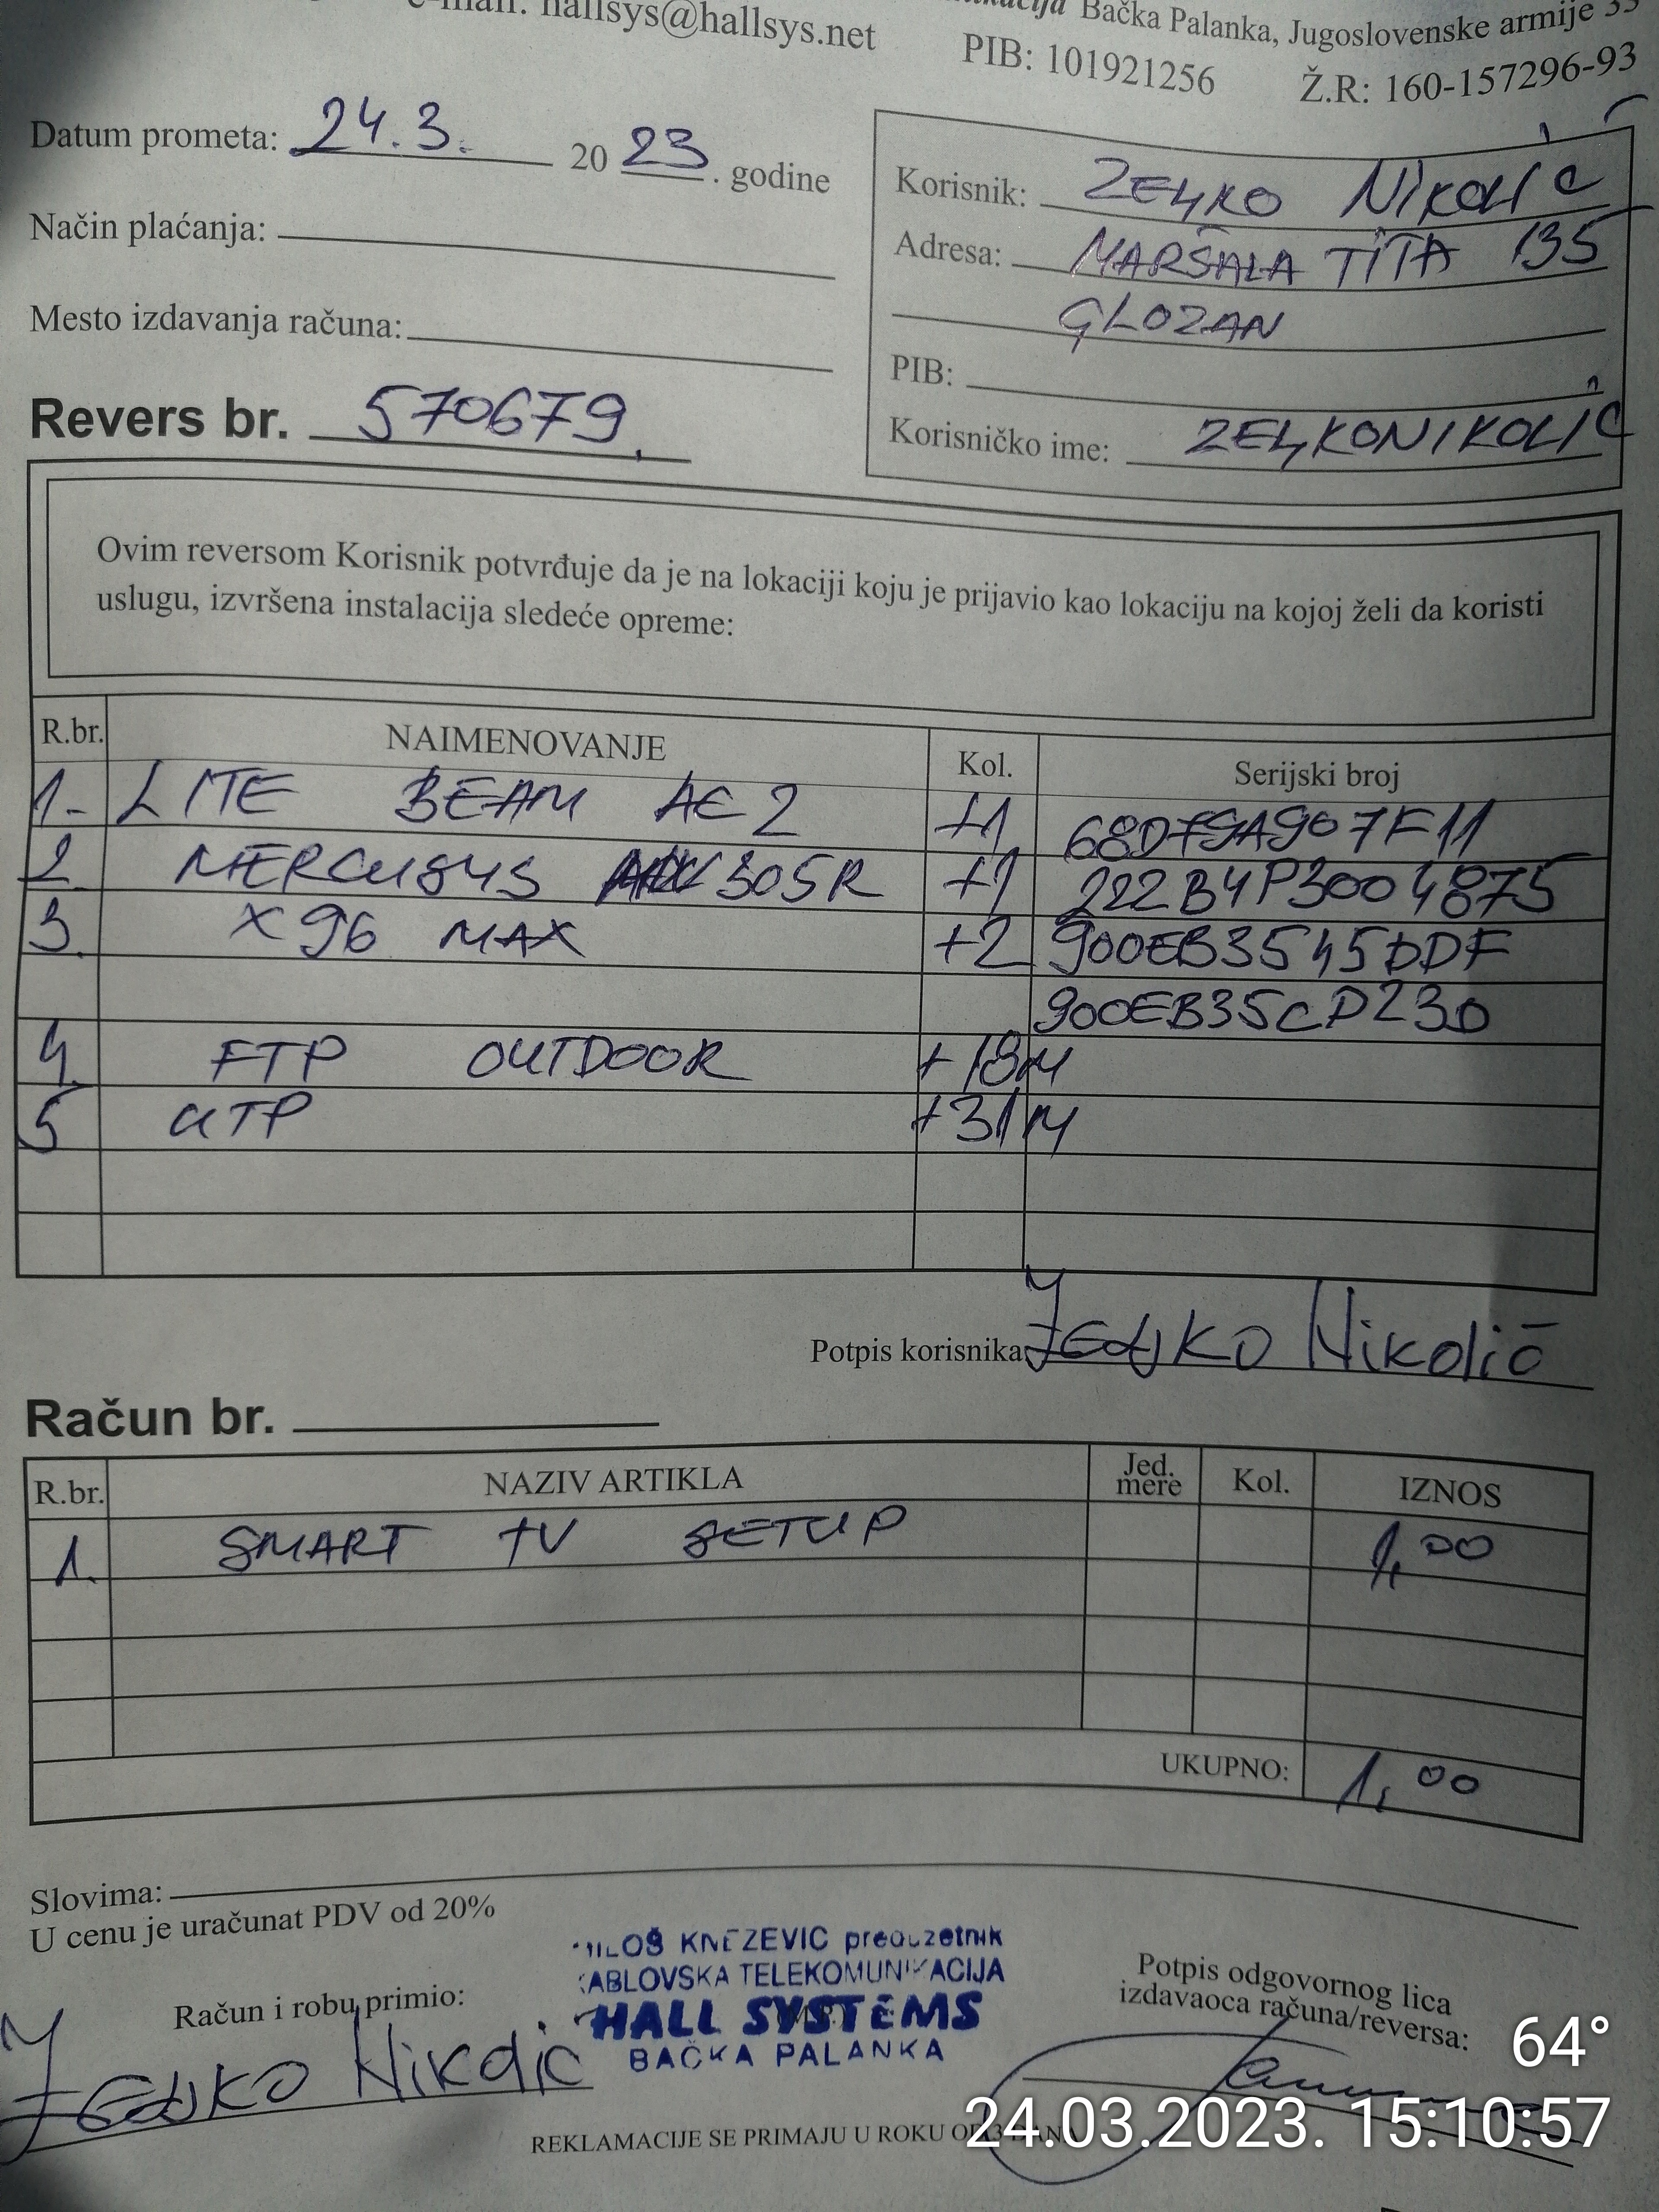 e-mail: hallsys@hallsys.net
Bačka Palanka, Jugoslovenske armije 33
PIB: 101921256 Ž.R: 160-157296-93
Datum prometa: 24.3. 20 23. godine
Način plaćanja:
Mesto izdavanja računa:
Revers br. 570679.
Korisnik: ZELJKO NIKOLIĆ
Adresa: MARŠALA TITA 135
GLOZAN
PIB:
Korisničko ime: ZELJKONIKOLIĆ
Ovim reversom Korisnik potvrđuje da je na lokaciji koju je prijavio kao lokaciju na kojoj želi da koristi
uslugu, izvršena instalacija sledeće opreme:
R.br. NAIMENOVANJE Kol. Serijski broj
1. LITE BEAM AC 2 +1 68D79A907F11
2 MERCUSYS 305R +1 222B4P3004875
3. X96 MAX +2 900EB3545DDF
900EB35CD230
4. FTP OUTDOOR +18M
5 UTP +31M
Potpis korisnika Željko Nikolić
Račun br.
R.br. NAZIV ARTIKLA Jed. mere Kol. IZNOS
1. SMART TV SETUP 1,00
UKUPNO: 1,00
Slovima:
U cenu je uračunat PDV od 20%
MILOŠ KNEZEVIC preduzetnik
KABLOVSKA TELEKOMUNIKACIJA
HALL SYSTEMS
BAČKA PALANKA
Račun i robu primio:
Željko Nikolić
Potpis odgovornog lica
izdavaoca računa/reversa:
REKLAMACIJE SE PRIMAJU U ROKU OD 3 DANA
64°
24.03.2023. 15:10:57